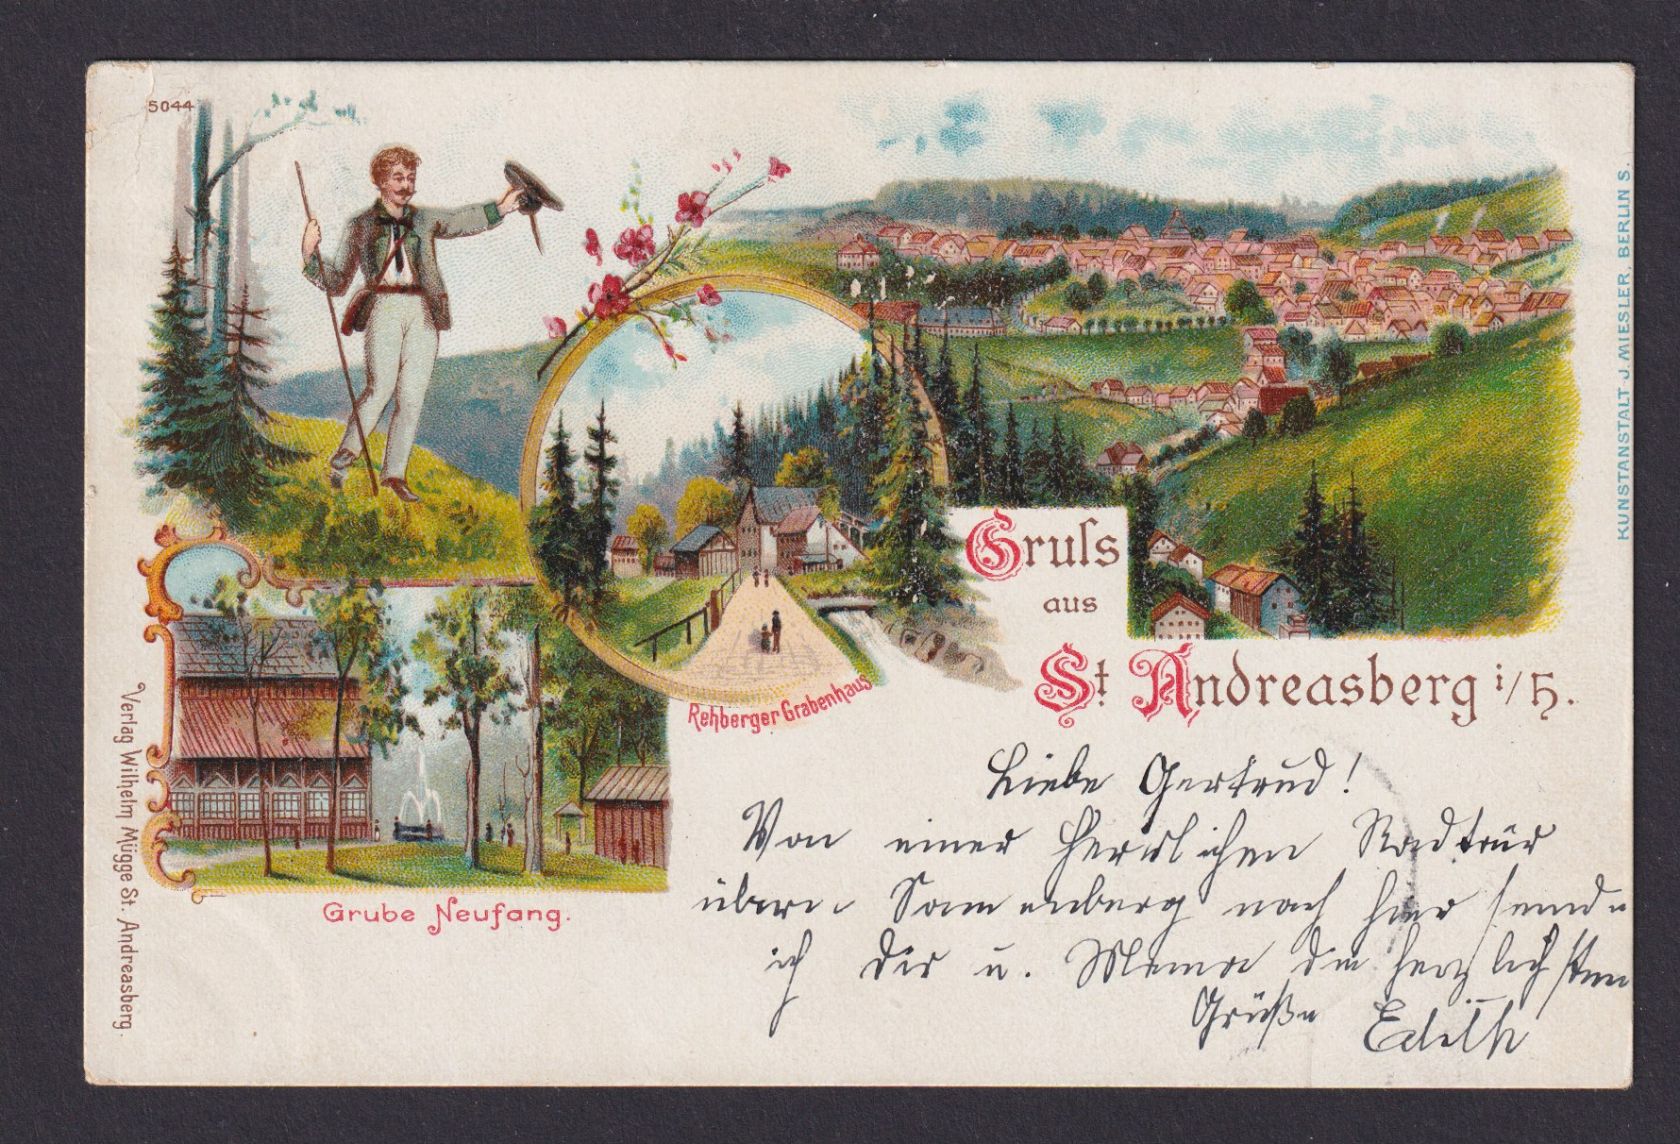 5044
KUNSTANSTALT J. MIESLER, BERLIN S.
Gruſs
aus
St Andreasberg i/H.
Rehberger Grabenhaus
Grube Neufang.
Verlag Wilhelm Mügge St. Andreasberg.
Liebe Gertrud!
Von einer herrlichen Radtour
übern Sonnenberg nach hier sende
ich Dir u. Mama die herzlichsten
Grüße Edith